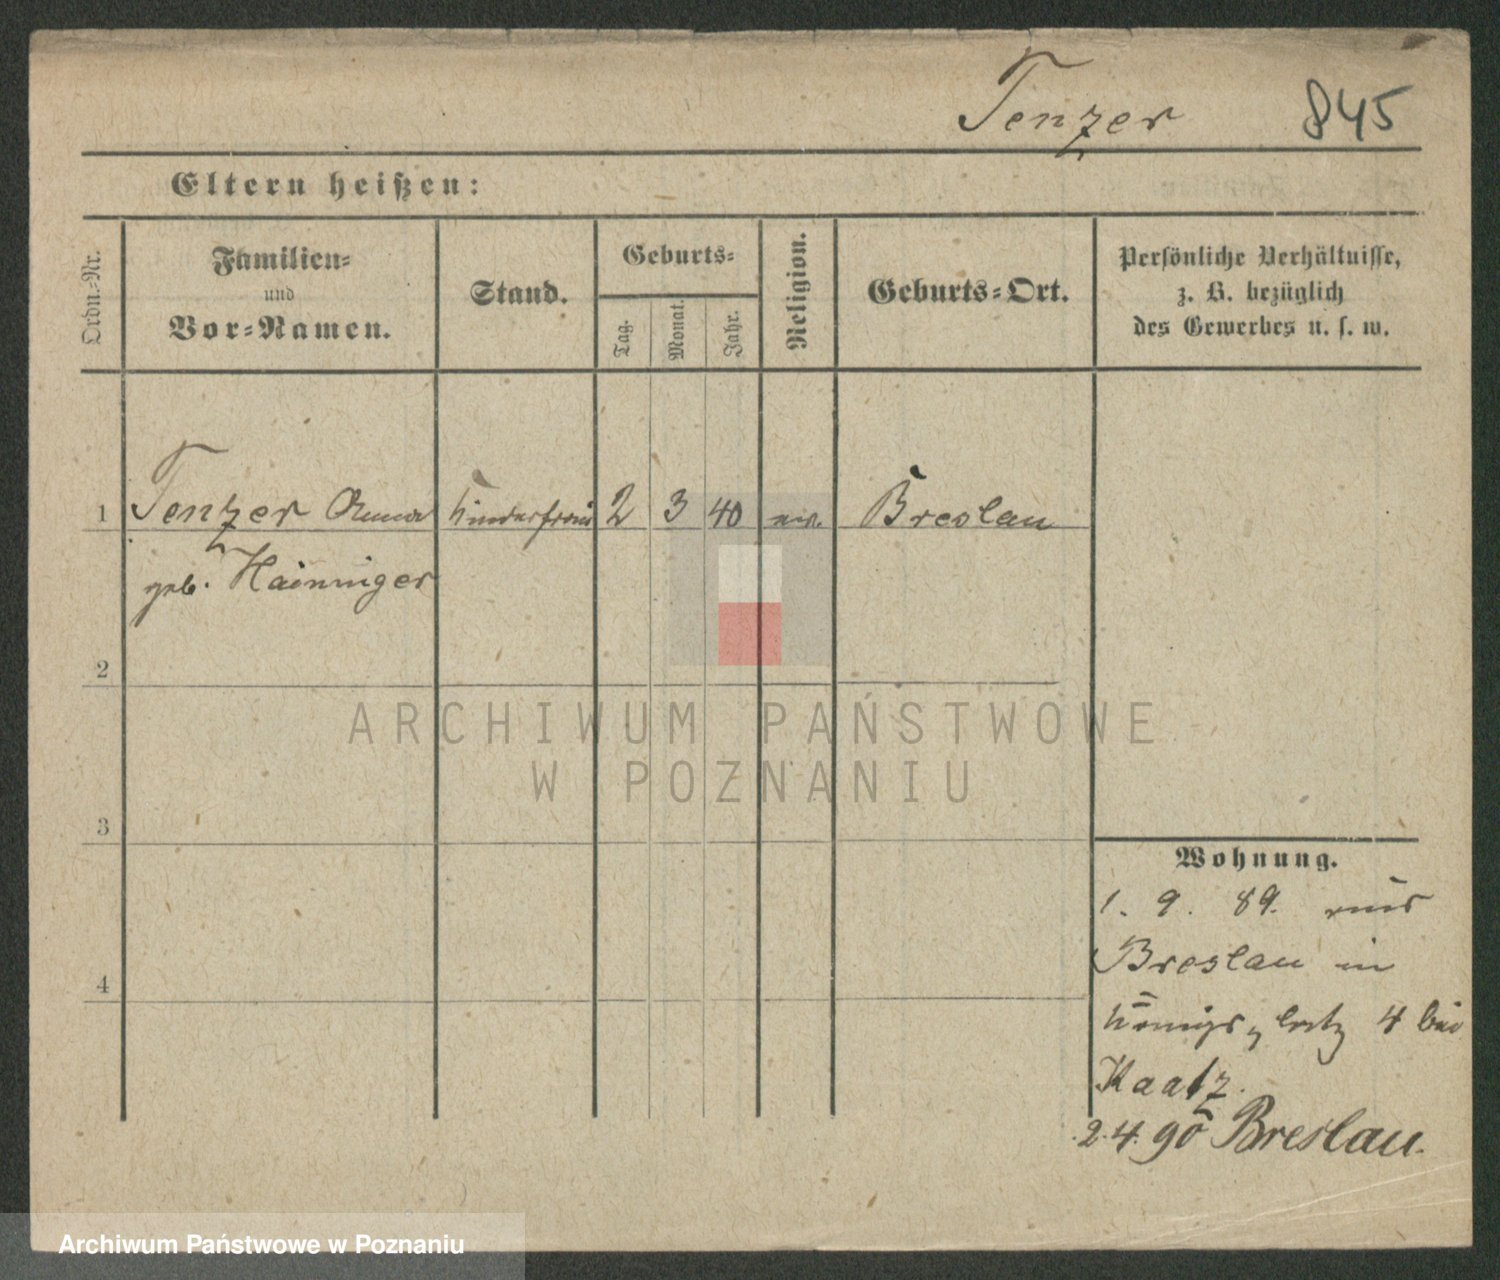 Tenzer 845
Eltern heißen:
Ordn.-Nr.
Familien-
und
Vor-Namen.
Stand.
Geburts-
Tag.
Monat.
Jahr.
Religion.
Geburts-Ort.
Persönliche Verhältnisse,
z. B. bezüglich
des Gewerbes u. s. w.
1 Tenzer Anna Kinderfrau 2 3 40 ev. Breslau
geb. Hainninger
2
ARCHIWUM PAŃSTWOWE
W POZNANIU
3
Wohnung.
1. 9. 89. aus
Breslau in
4
Königsplatz 4 bei
Kaatz.
2.4.90 Breslau.
Archiwum Państwowe w Poznaniu